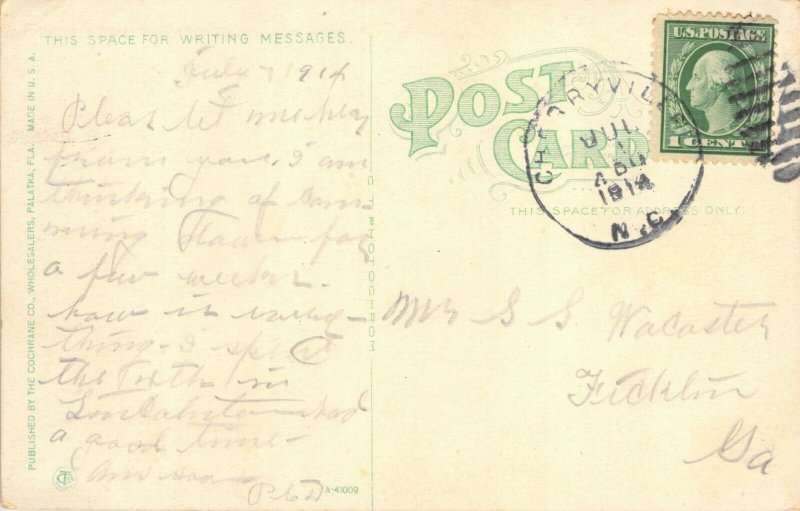 THIS SPACE FOR WRITING MESSAGES.
July 7 1914
Pleas let me hear
from you. I am
thinking of com-
ming down for
a few weeks.
how is every-
thing. I spent
the 4th in
Lincolnton had
a good time-
Ans soon
P.G.D
POST CARD
THIS SPACE FOR ADDRESS ONLY.
CHERRYVILLE
JUL
1914
N.C.
U.S. POSTAGE
1 CENT 1
Mr S S Wacaster
Ficklin
Ga
PUBLISHED BY THE COCHRANE CO., WHOLESALERS, PALATKA, FLA. MADE IN U.S.A.
C.T. PHOTOCHROM
A-41009